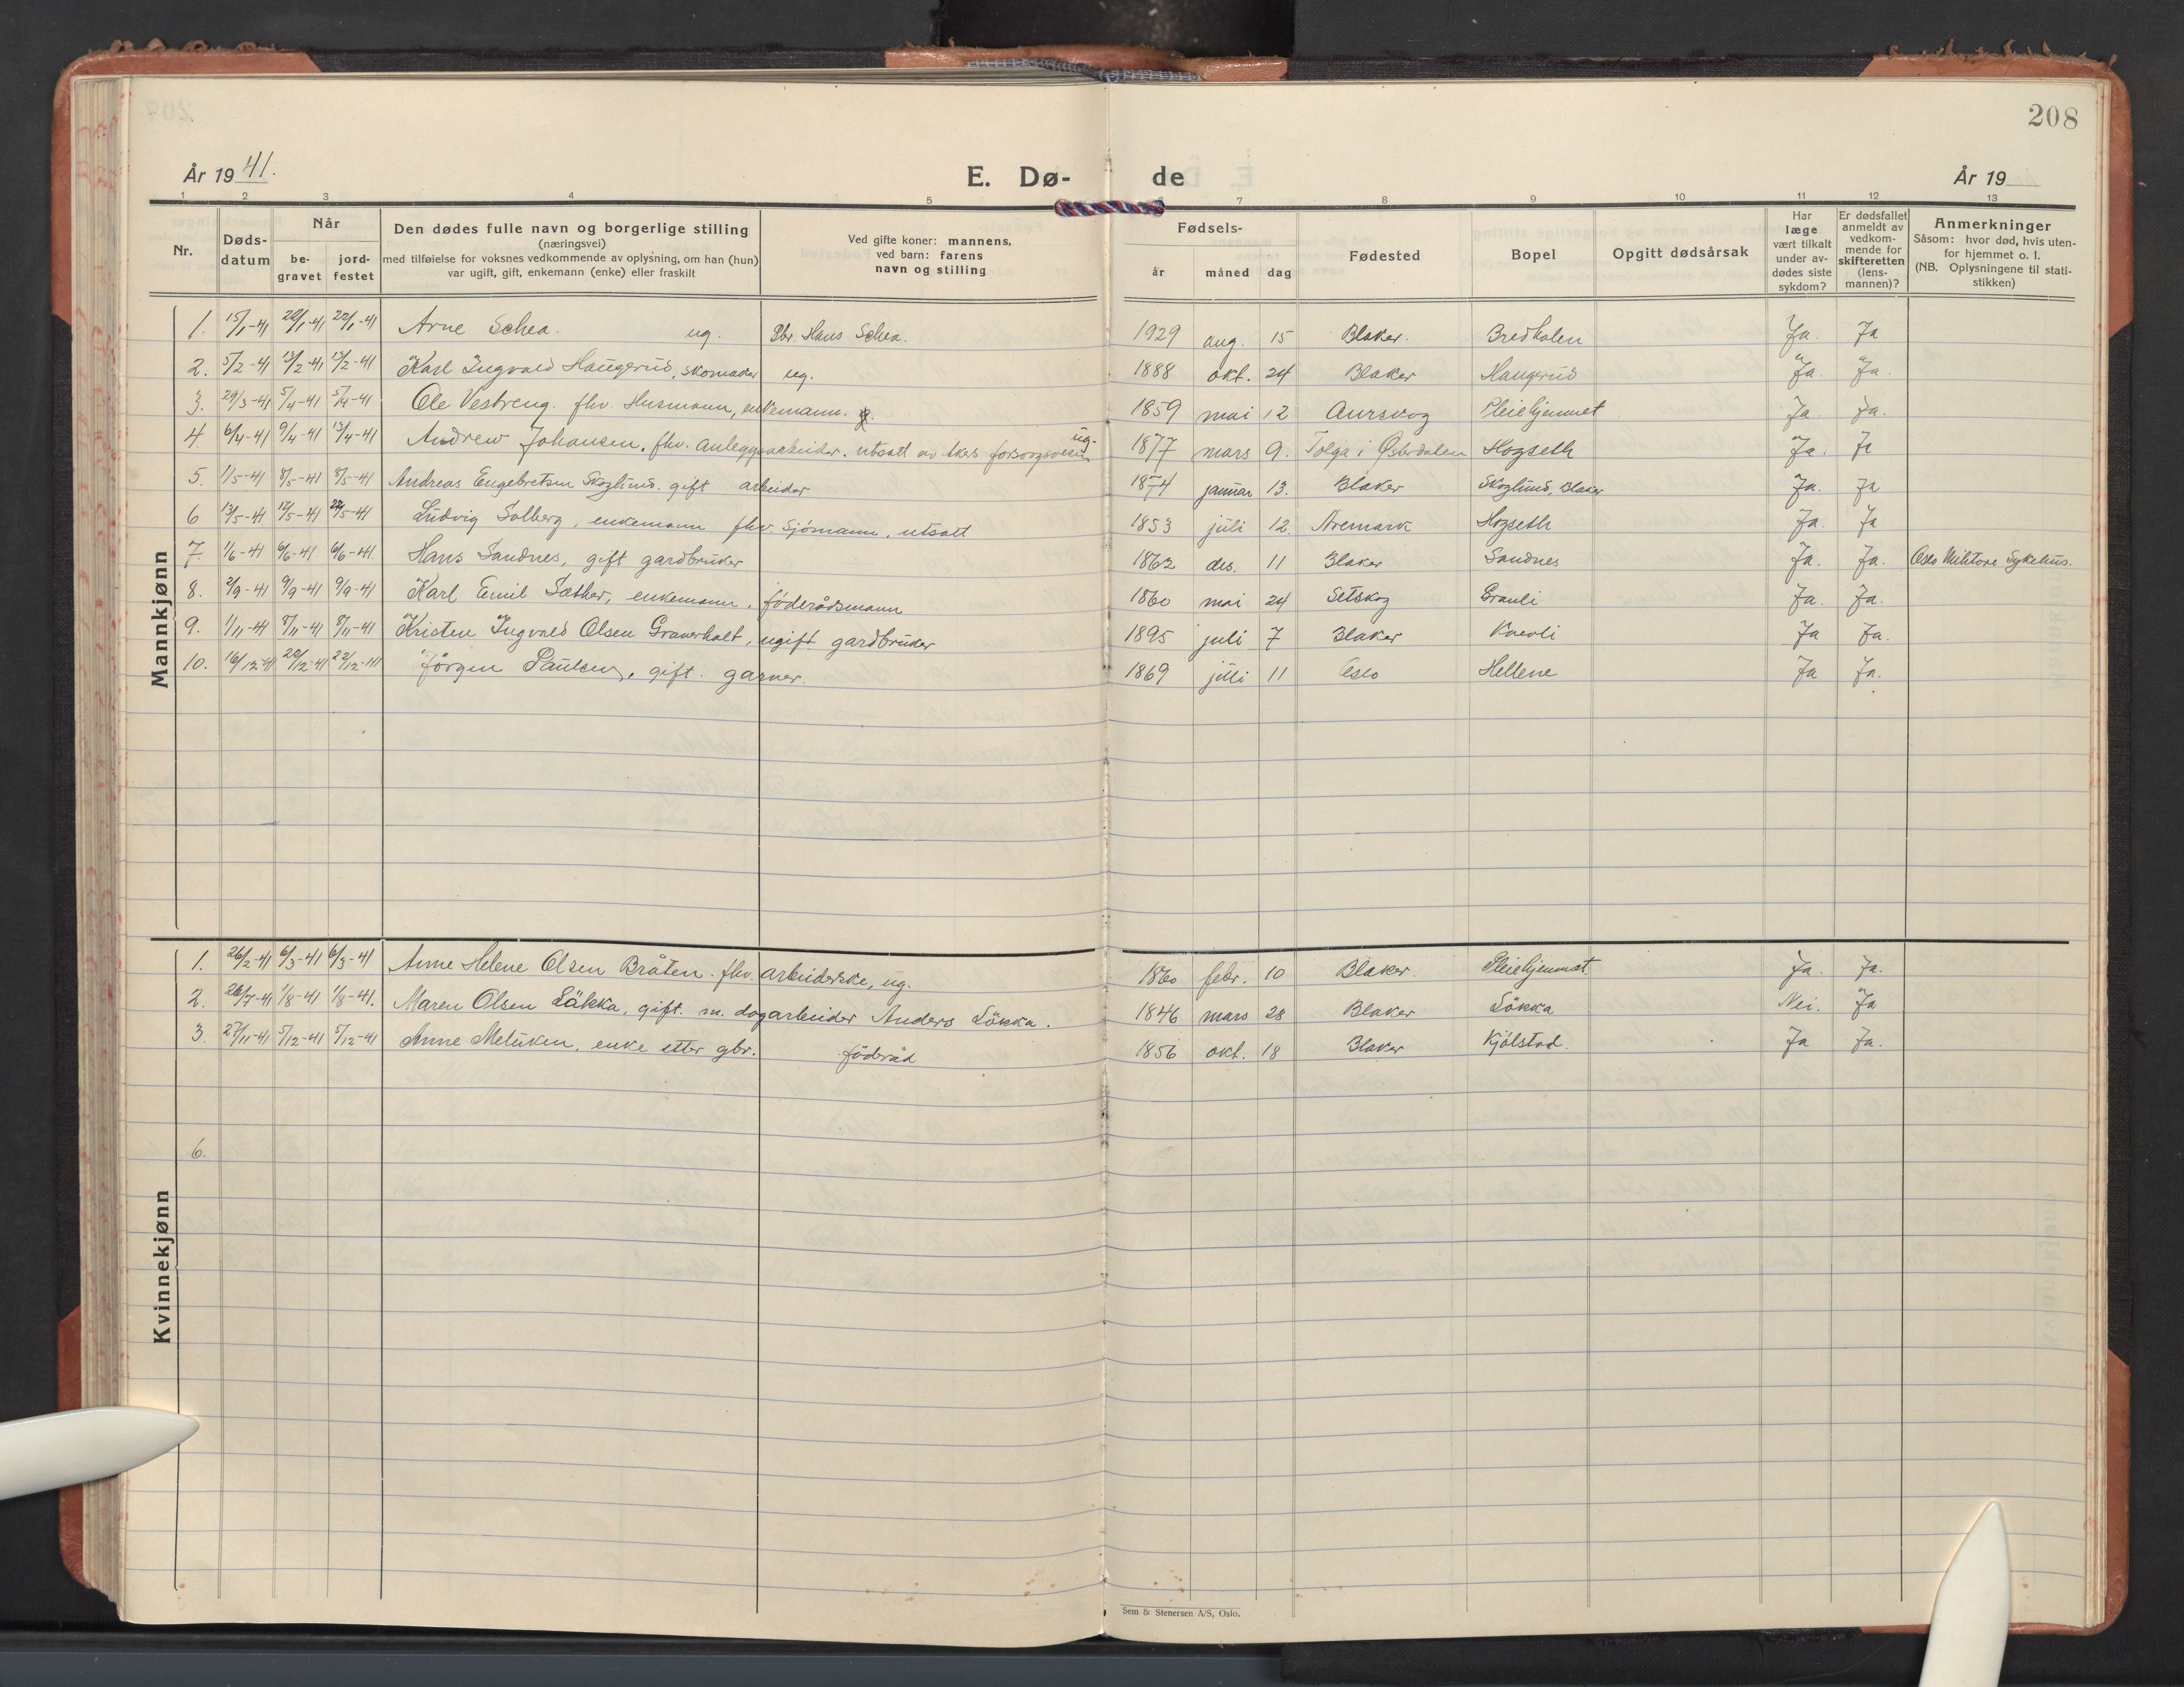 208
År 1941.
E. Dø-
de
År 19
1 2 3 4 5 6 7 8 9 10 11 12 13
Nr.
Døds-
datum
Når
be-
gravet
jord-
festet
Den dødes fulle navn og borgerlige stilling
(næringsvei)
med tilføielse for voksnes vedkommende av oplysning, om han (hun)
var ugift, gift, enkemann (enke) eller fraskilt
Ved gifte koner: mannens,
ved barn: farens
navn og stilling
Fødsels-
år måned dag
Fødested
Bopel
Opgitt dødsårsak
Har
læge
vært tilkalt
under av-
dødes siste
sykdom?
Er dødsfallet
anmeldt av
vedkom-
mende for
skifteretten
(lens-
mannen)?
Anmerkninger
Såsom: hvor død, hvis uten-
for hjemmet o. l.
(NB. Oplysningene til stati-
stikken)
Mannkjønn
1. 15/1-41 22/1-41 22/1-41 Arne Schea. ug. Hans Schea. 1929 aug. 15 Blaker. Bredholen Ja. Ja
2. 5/2-41 13/2-41 13/2-41 Karl Ingvald Haugerud, skomaker ug. 1888 okt. 24 Blaker Haugerud Ja. Ja.
3. 29/3-41 5/4-41 5/4-41 Ole Vestreng. fhv. Husmann, enkemann. 1859 mai 12 Aurskog Pleiehjemmet Ja. Ja.
4 6/4-41 9/4-41 13/4-41 Andrew Johansen, fhv. anleggsarbeider. utsatt av Akers forsorgsvesen ug. 1877 mars 9. Tolga i Østerdalen Hogseth Ja. Ja
5. 1/5-41 8/5-41 8/5-41 Andreas Engebretsen Skoglund. gift arbeider 1874 januar 13. Blaker Skoglund, Blaker Ja. Ja
6 13/5-41 17/5-41 /5-41 Ludvig Solberg, enkemann fhv. Sjömann, utsatt 1853 juli 12. Aremark Hogseth Ja. Ja
7. 1/6-41 6/6-41 6/6-41. Hans Sandnes, gift gardbruker 1862 des. 11 Blaker Sandnes Ja. Ja. Oslo Militære Sykehus.
8. 2/9-41 9/9-41 9/9-41 Karl Emil Sæther, enkemann, föderådsmann 1860 mai 24 Setskog Granli Ja. Ja.
9. 1/11-41 8/11-41 8/11-41 Kristen Ingvald Olsen Graverholt, ugift gardbruker 1895 juli 7 Blaker Ja Ja.
10. 16/12-41 22/12-41 22/12-41 Jörgen Paulsen, gift. garver. 1869 juli 11 Oslo Hellene Ja Ja.
Kvinnekjønn
1. 26/2-41 6/3-41 6/3-41 Anne Helene Olsen Bråten. fhv. arbeiderske, ug. 1860 febr. 10 Blaker. Pleiehjemmet. Ja. Ja.
2. 26/7-41 1/8-41 1/8-41. Maren Olsen Läkka, gift. m. dagarbeider Anders Lökka. 1846 mars 28 Blaker Lökka Nei. Ja
3. 27/11-41 5/12-41 5/12-41 Anne Metuken, enke etter gbr. föderåd 1856 okt. 18 Blaker Kjölstad. Ja Ja.
6.
Sem & Stenersen A/S, Oslo.